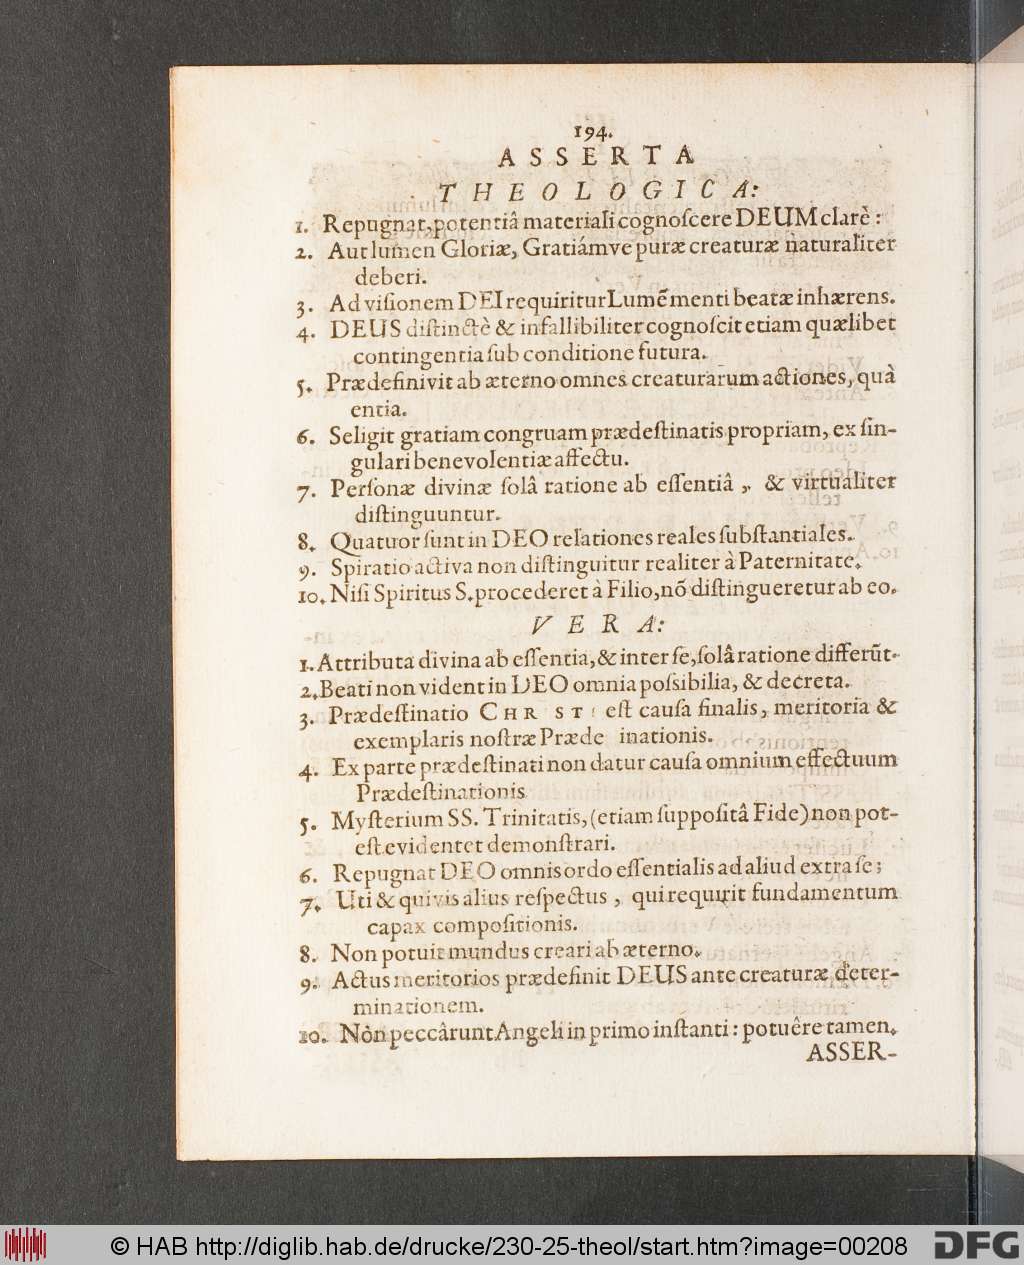 194.
ASSERTA
THEOLOGICA:
1. Repugnat, potentiâ materiali cognoſcere DEUM clarè:
2. Aut lumen Gloriæ, Gratiámve puræ creaturæ naturaliter
deberi.
3. Ad viſionem DEI requiritur Lumẽ menti beatæ inhærens.
4. DEUS diſtinctè & infallibiliter cognoſcit etiam quælibet
contingentia ſub conditione futura.
5. Prædefinivit ab æterno omnes creaturarum actiones, quà
entia.
6. Seligit gratiam congruam prædeſtinatis propriam, ex ſin-
gulari benevolentiæ affectu.
7. Perſonæ divinæ ſolâ ratione ab eſſentiâ, & virtualiter
diſtinguuntur.
8. Quatuor ſunt in DEO relationes reales ſubſtantiales.
9. Spiratio activa non diſtinguitur realiter à Paternitate.
10. Niſi Spiritus S. procederet à Filio, nõ diſtingueretur ab eo.
VERA:
1. Attributa divina ab eſſentia, & inter ſe, ſolâ ratione differũt.
2. Beati non vident in DEO omnia poſsibilia, & decreta.
3. Prædeſtinatio CHR ST eſt cauſa finalis, meritoria &
exemplaris noſtræ Præde inationis.
4. Ex parte prædeſtinati non datur cauſa omnium effectuum
Prædeſtinationis
5. Myſterium SS. Trinitatis, (etiam ſuppoſitâ Fide) non pot-
eſt evidenter demonſtrari.
6. Repugnat DEO omnis ordo eſſentialis ad aliud extra ſe;
7. Uti & quivis alius reſpectus, qui requirit fundamentum
capax compoſitionis.
8. Non potuit mundus creari ab æterno.
9. Actus meritorios prædefinit DEUS ante creaturæ deter-
minationem.
10. Nòn peccârunt Angeli in primo inſtanti: potuêre tamen.
ASSER-
© HAB http://diglib.hab.de/drucke/230-25-theol/start.htm?image=00208
DFG